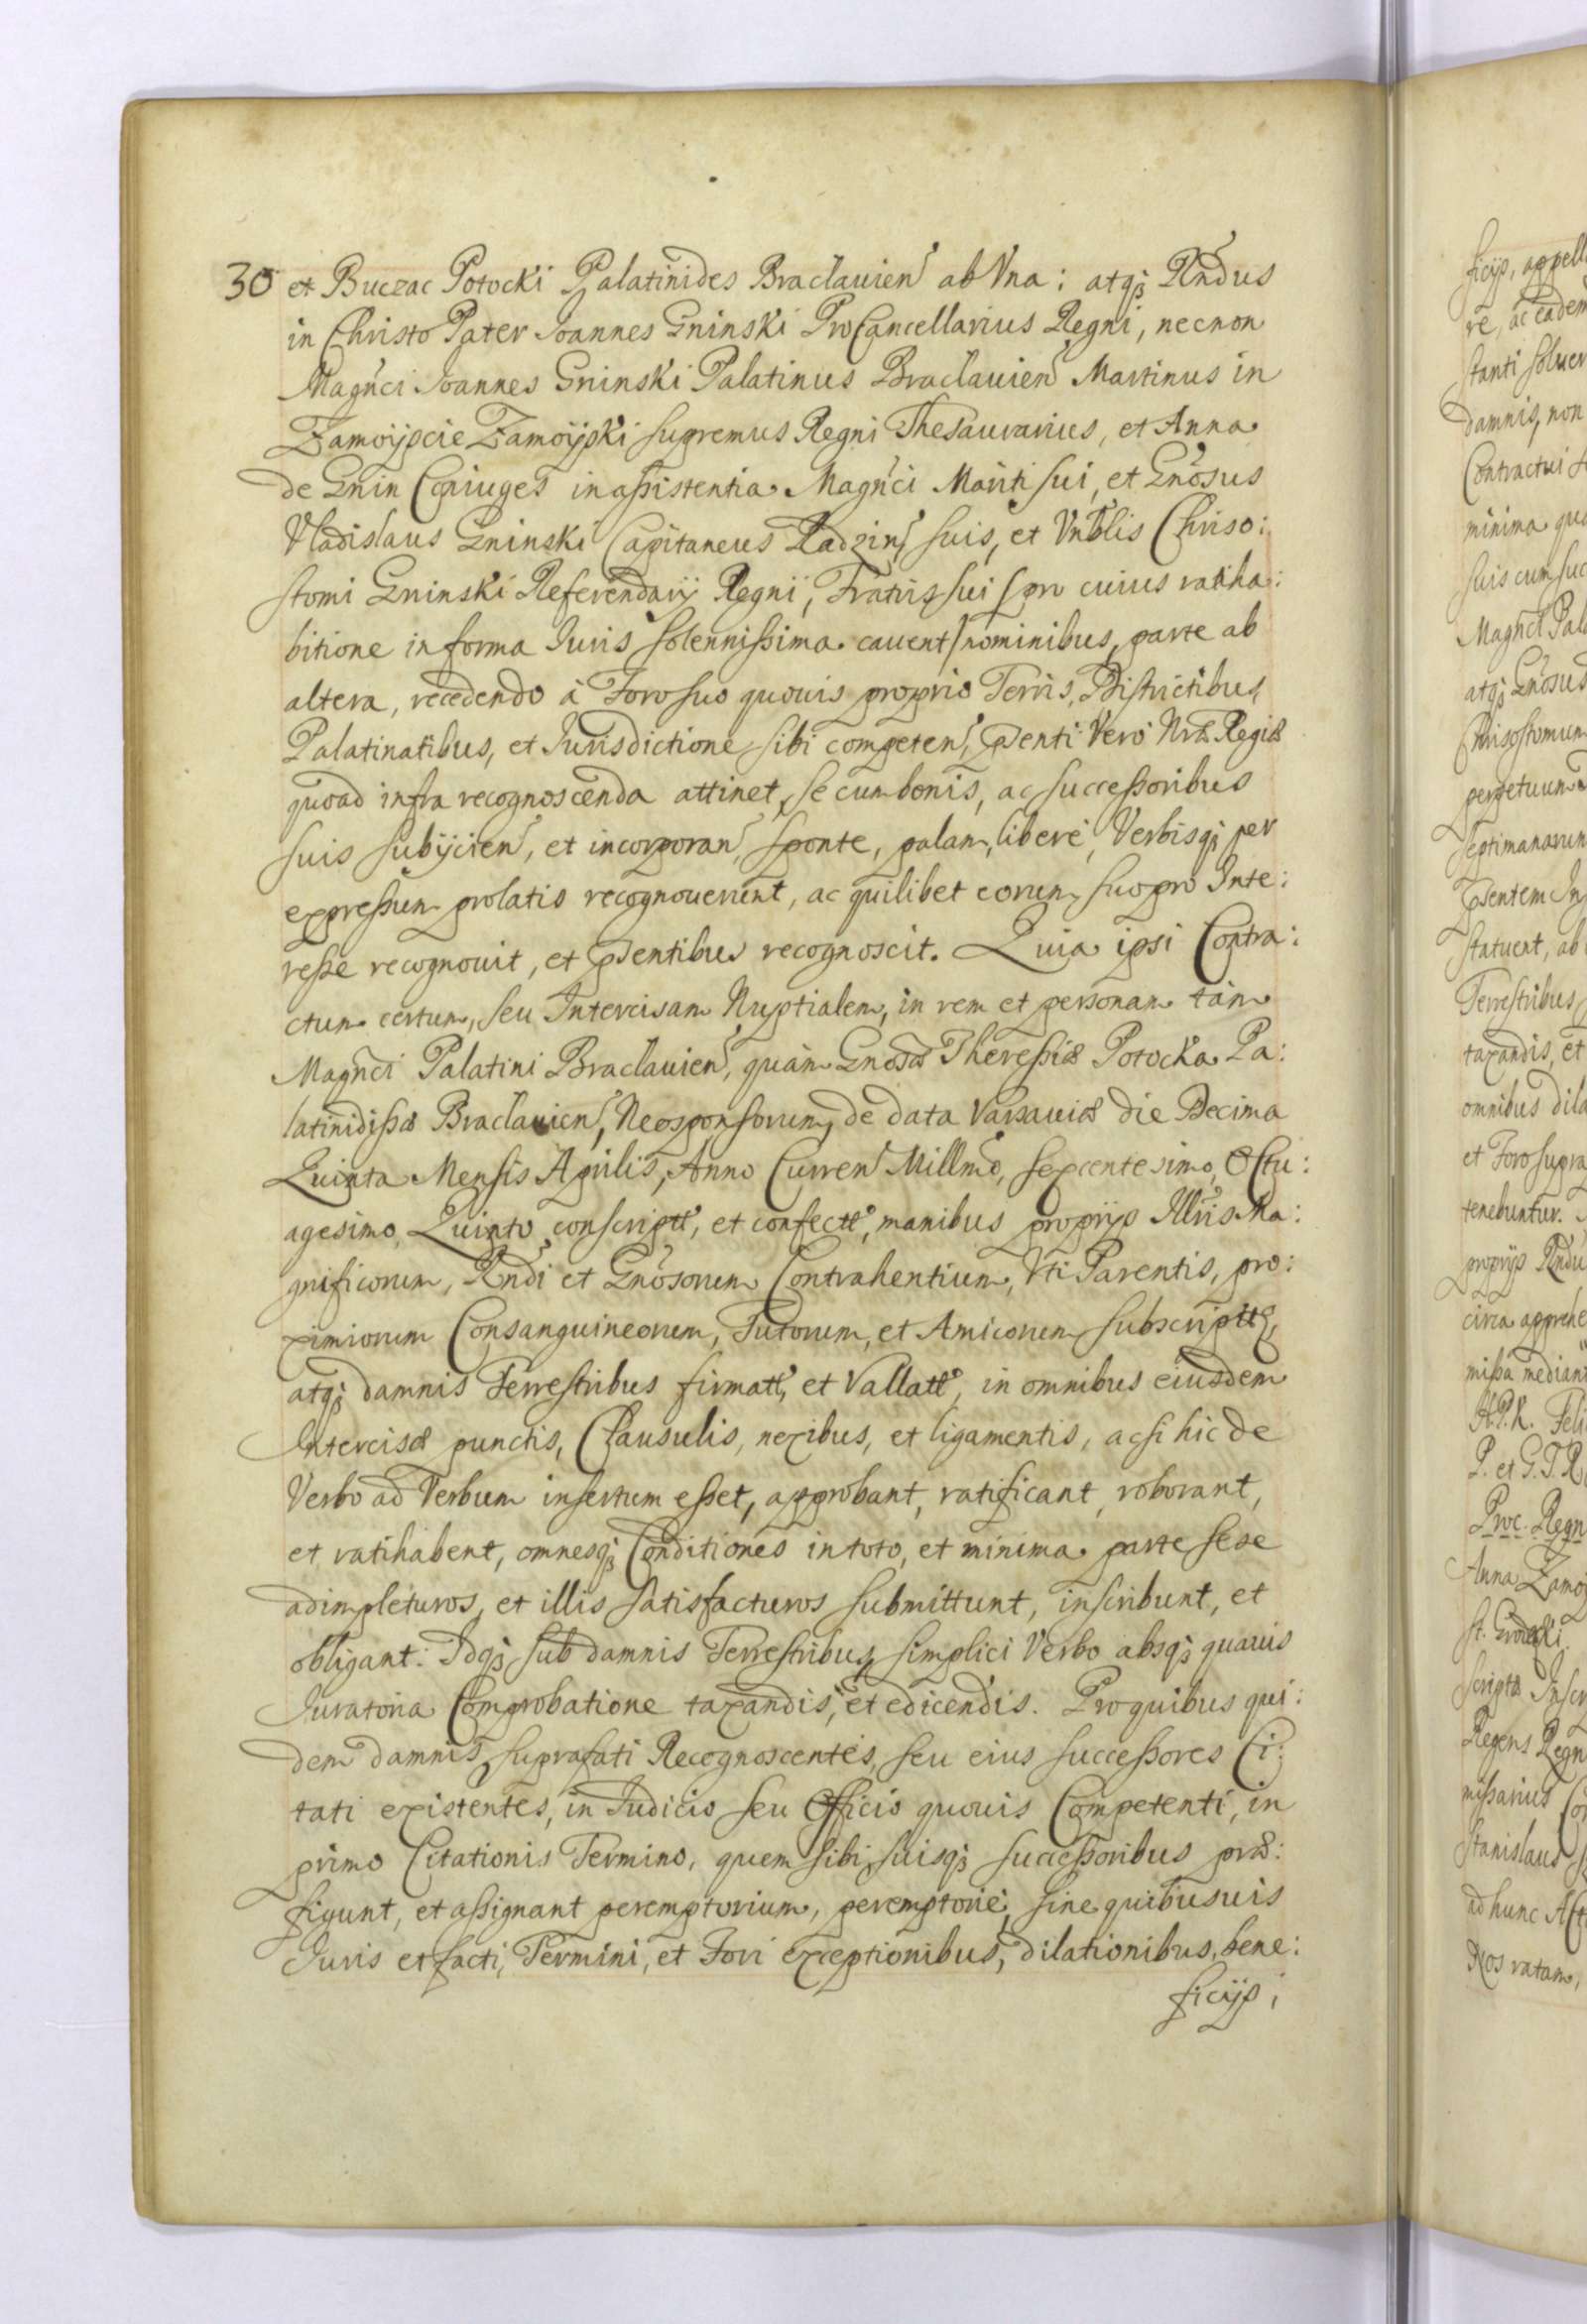 30 et Buczac Potocki Palatinides Braclauien ab Vna: atq; Rñdus
in Christo Pater Joannes Gninski ProCancellarius Regni, necnon
Magñci Joannes Gninski Palatinus Braclauien Martinus in
Zamoÿscie Zamoÿski supremus Regni Thesaurarius, et Anna
de Gnin Coniuges in assistentia Magñci Mariti sui, et Gnosus
Vladislaus Gninski Capitaneus Radzin, suis, et Vrblis Chriso:
stomi Gninski Referendarij Regni, Fratris sui (pro cuius ratiha:
bitione in forma Juris solennissima cauent) nominibus, parte ab
altera, recedendo à Foro suo quouis proprio Terris, Districtibus,
Palatinatibus, et Jurisdictione sibi competen, pñti Vero Nræ Regiæ
quoad infra recognoscenda attinet, se cum bonis, ac successoribus
suis subijcien, et incorporan, sponte, palam, liberè, Verbisq; per
expressum prolatis recognouerunt, ac quilibet eorum suo pro Inte:
resse recognouit, et pñtibus recognoscit. Quia ipsi Contra:
ctum certum, seu Intercisam Nuptialem, in rem et personam tàm
Magñci Palatini Braclauien, quàm Gnosæ Theressiæ Potocka Pa:
latinidissæ Braclauien, Neosponsorum, de data Varsauiæ die Decima
Quinta Mensis Aprilis, Anno Curren Millmo, sexcentesimo, Octu:
agesimo, Quinto conscriptt, et confectt, manibus proprijs Illris Ma:
gnificorum, Rñdi et Gnosorum Contrahentium, Vti Parentis, pro:
ximiorum Consanguineorum, Tutorum, et Amicorum subscriptt,
atq; damnis Terrestribus firmatt, et Vallatt, in omnibus eiusdem
Intercisæ punctis, Clausulis, nexibus, et ligamentis, acsi hic de
Verbo ad Verbum insertum esset, approbant, ratificant, roborant,
et ratihabent, omnesq; Conditiones in toto, et minima parte sese
adimpleturos, et illis satisfacturos submittunt, inscribunt, et
obligant: Idq; sub damnis Terrestribus, simplici Verbo absq; quauis
Juratoria Comprobatione taxandis, et edicendis. Pro quibus qui:
dem damnis, suprafati Recognoscentes, seu eius successores Ci:
tati existentes, in Judicio seu Officio quouis Competenti, in
primo Citationis Termino, quem sibi, suisq; successoribus præ:
figunt, et assignant peremptorium, peremptorie, sine quibusuis
Juris et facti, Termini, et Fori exceptionibus, dilationibus, bene:
ficijs;
ficijs, appell
re, ac eadem
stanti soluer
damnis, non
Contractui
minima qua
suis cum suc
Magñci Pala
atq; Gnosus
Chrisostomum
perpetuum
septimanarum
pñtem In
statuent, ab
Terrestribus,
taxandis, et
omnibus dila
et Foro supra
tenebuntur.
proprijs Rñdu
circa apprehe
missa median
H.P.K. Feli
P. et G.T.R
Proc. Regn
Anna Zamoy
scriptæ Inscr
Regens Regn
missarius Co
Stanislaus
ad hunc Act
Nos ratam,